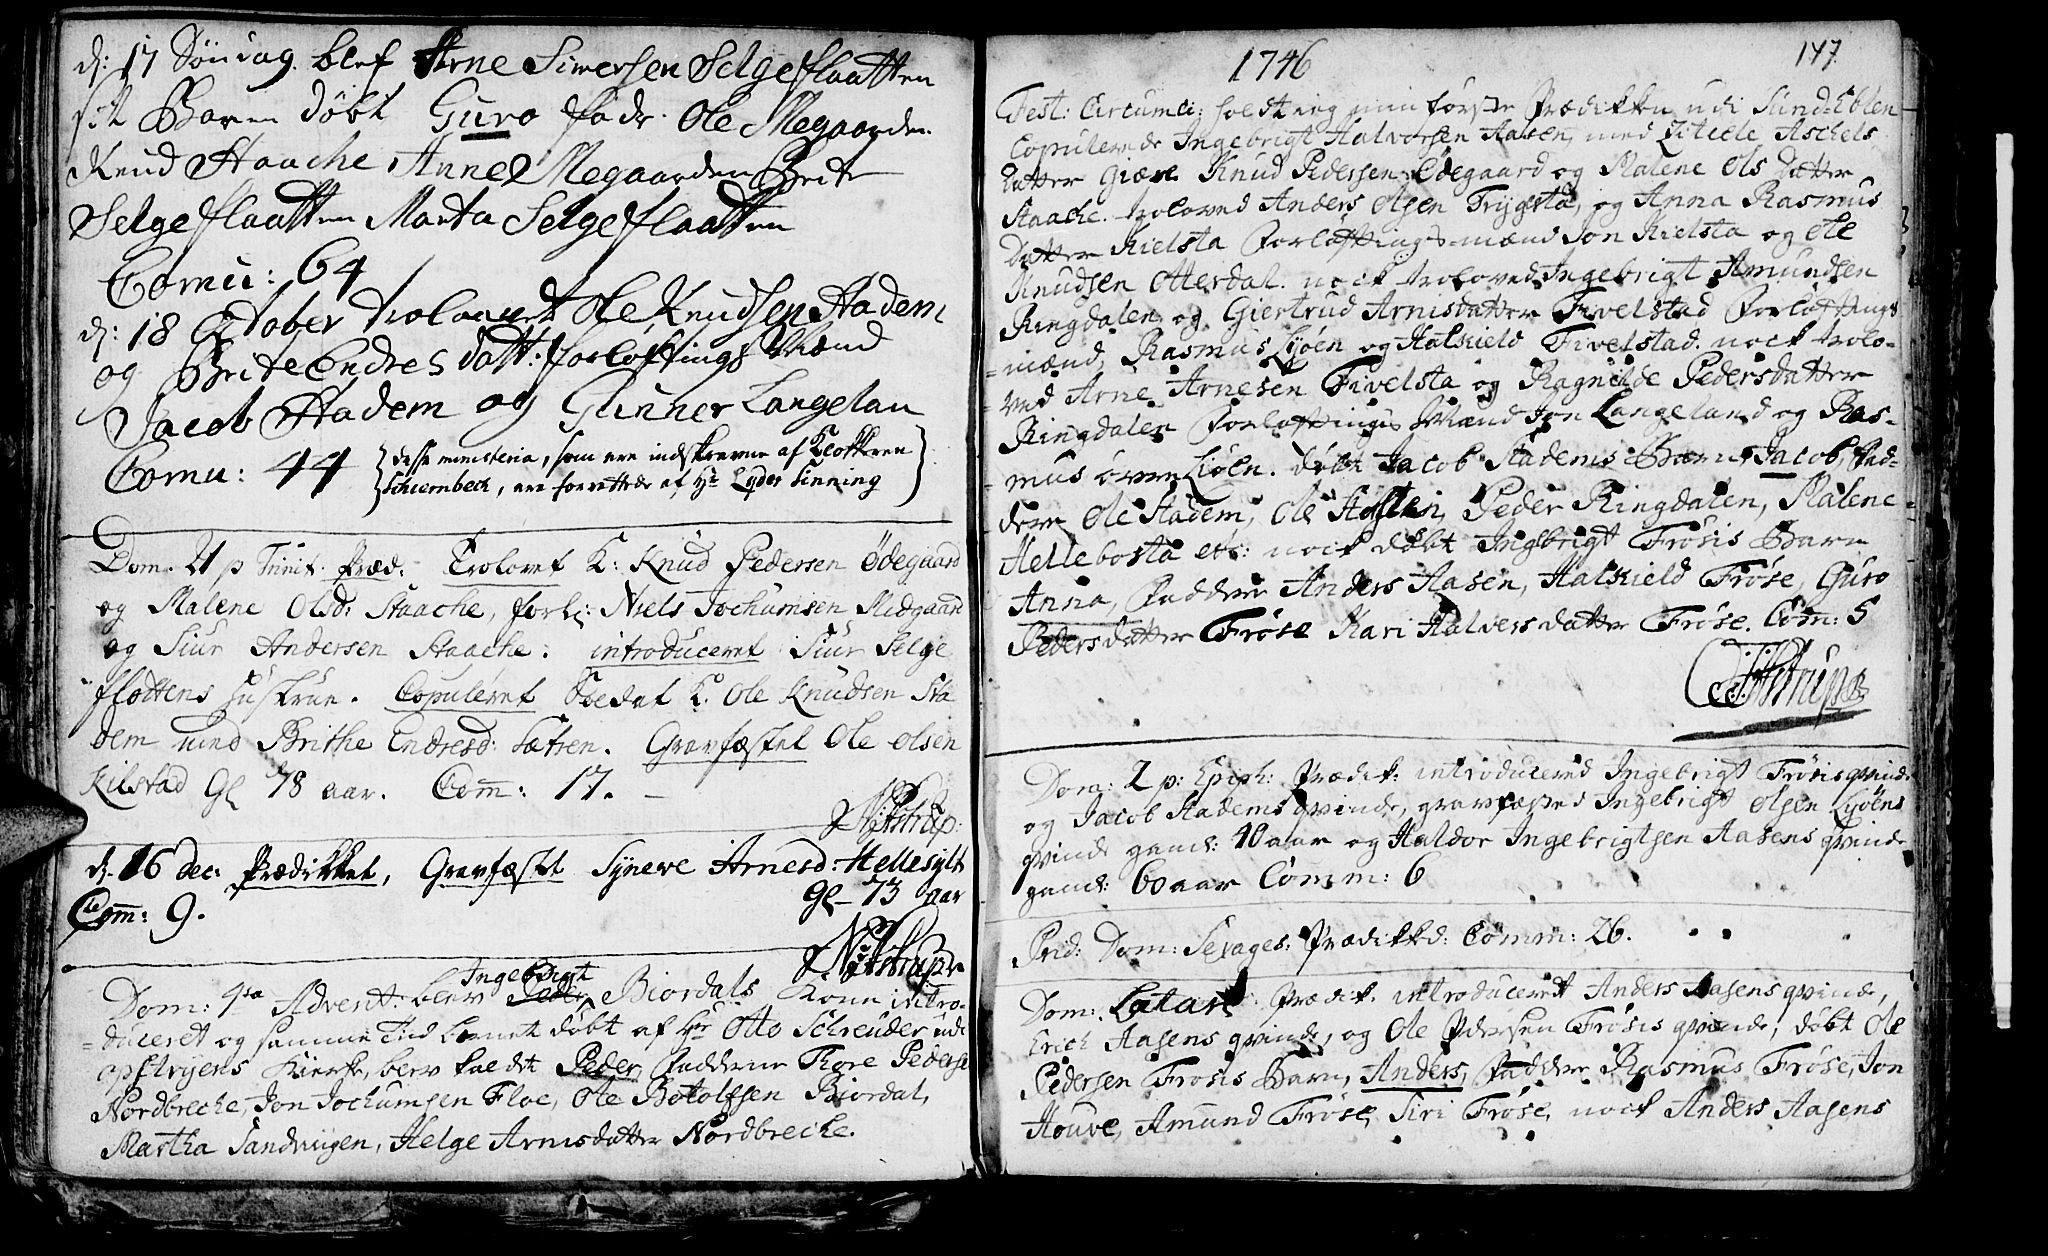 d: 17 Söndag blef Arne Simersen Selgeflaatten
sit Baren döbt Guro fadr. Ole Megaarden
Knud Staache Anne Megaarden Brite
Selgeflaatten Marta Selgeflaatten
Comu: 64
d: 18 October trolovet Ole Knudsen Stadem
og Brite Endres datt: forlöftings Mænd
Jacob Stadem og Gunner Langelan
Comu: 44 {desse ministeria, som ere indskrevne af Klokkeren
Schiembeck, ere forrettede af Hr Lyder Finning}
Dom. 21 p Trinit. Præd: Trolovet K: Knud Pedersen Ödegaard
og Malene Olsd: Staache, forl: Niels Jochumsen Midgaard
og Siur Andersen Staache: introduceret Siur Selge
flottens hustrue. Copuleret K. Ole Knudsen Sta
dem med Brithe Endresd: Sætren. Gravfæstet Ole Olsen
Kilstad Gl 78 aar. Com̄: 17. –
d. 16 dec: Prædikket, Gravfæstet Syneve Arnesd: Hellesylt
Gl– 73 aar
Com̄: 9.
Dom: 4ta Advent: blev Ingebrigt Biordals Kone intro-
duceret og samme Tid barnet döbt af Hr Otto Schreuder udi
opstryens Kierke, blev kaldet Peder, fadderne Tore Peders:
Nordbreche, Jon Jochumsen Floe, Ole Botolfsen Biordal,
Martha Sandvigen, Helge Arnisdatter Nordbreche.
1746 147
Fest: Circumci: holdt ieg min förste Prædikken udi Sund-Eblen
Copulerede Ingebrigt Halvorsen Aasen, med Aschels
datter Giære Knud Pedersen Ödegaard og Malene Ols datter
Staache. troloved Anders Olsen Trygsta, og Anna Rasmus
Datter Kielsta Forlöftings-mænd Jon Kielsta og Ole
Knudsen Otterdal. nock troloved Ingebrigt Amundsen
Ringdalen og Giertrud Arnisdatter Fivelstad Forlöftings
-mænd, Rasmus Lyöen og Halskield Fivelstad. nock trolo-
ved Arne Arnesen Fivelsta og Ragnilde Pedersdatter
Ringdalen Forlöftings Mænd Jon Langeland og Ras-
mus övre Liöen. döbt Jacob Stadems Barn, Jacob, Fad-
dere Ole Stadem, Ole, Peder Ringdalen, Malene
Hellebosta etc: nock döbt Ingebrigt Frösis Barn
Anna, Faddere Anders Aasen, Halskield Fröse, Guro
Pedersdatter Fröse Kari Halversdatter Fröse. Com: 5
Dom: 2 p: Epiph: Prædik: introducered Ingebrigt Frösis qvinde
og Jacob Stadems qvinde, gravfæsted Ingebrigt Olsen Lyöens
qvinde gaml: 40 aar og Haldor Ingebrigtsen Aasens qvinde
gaml: 60 aar Comm: 6
Prid: Dom: Sexages: Prædikkd: Comm: 26.
Dom: Lætare: Prædik. introduceret Anders Aasens qvinde,
Erich Aasens qvinde, og Ole Pedersen Frösis qvinde, döbt Ole
Pedersen Frösis Barn, Anders, Faddere Rasmus Fröse, Jon
Houve, Amund Fröse, Siri Fröse, nock Anders Aasens